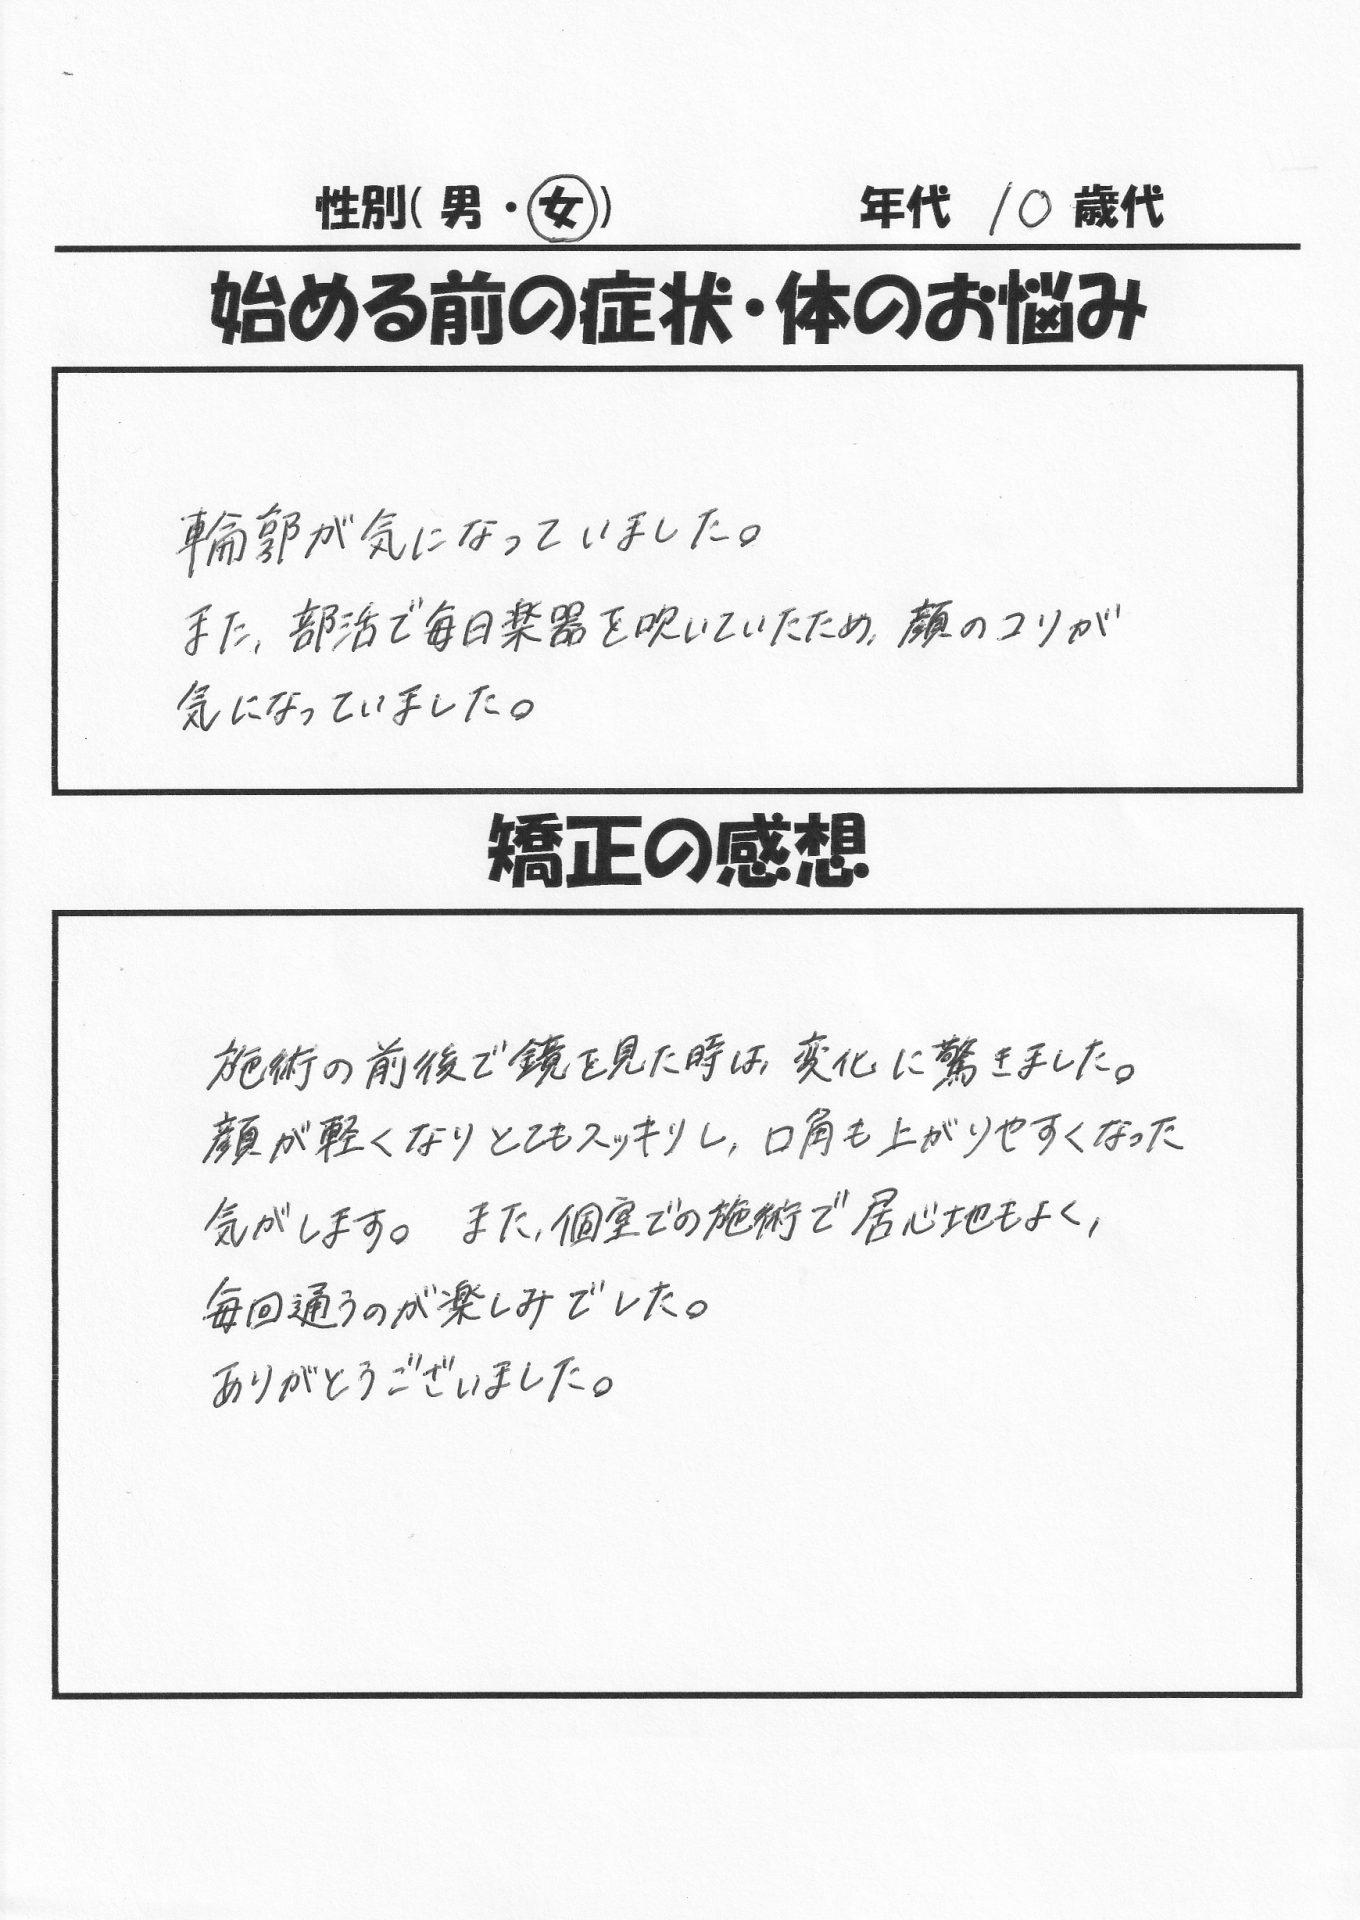 性別( 男 ・ 女 )　年代 10 歳代
始める前の症状・体のお悩み
輪郭が気になっていました。
また、部活で毎日楽器を吹いていたため、顔のコリが
気になっていました。
矯正の感想
施術の前後で鏡を見た時は、変化に驚きました。
顔が軽くなりとてもスッキリし、口角も上がりやすくなった
気がします。 また、個室での施術で居心地もよく、
毎回通うのが楽しみでした。
ありがとうございました。